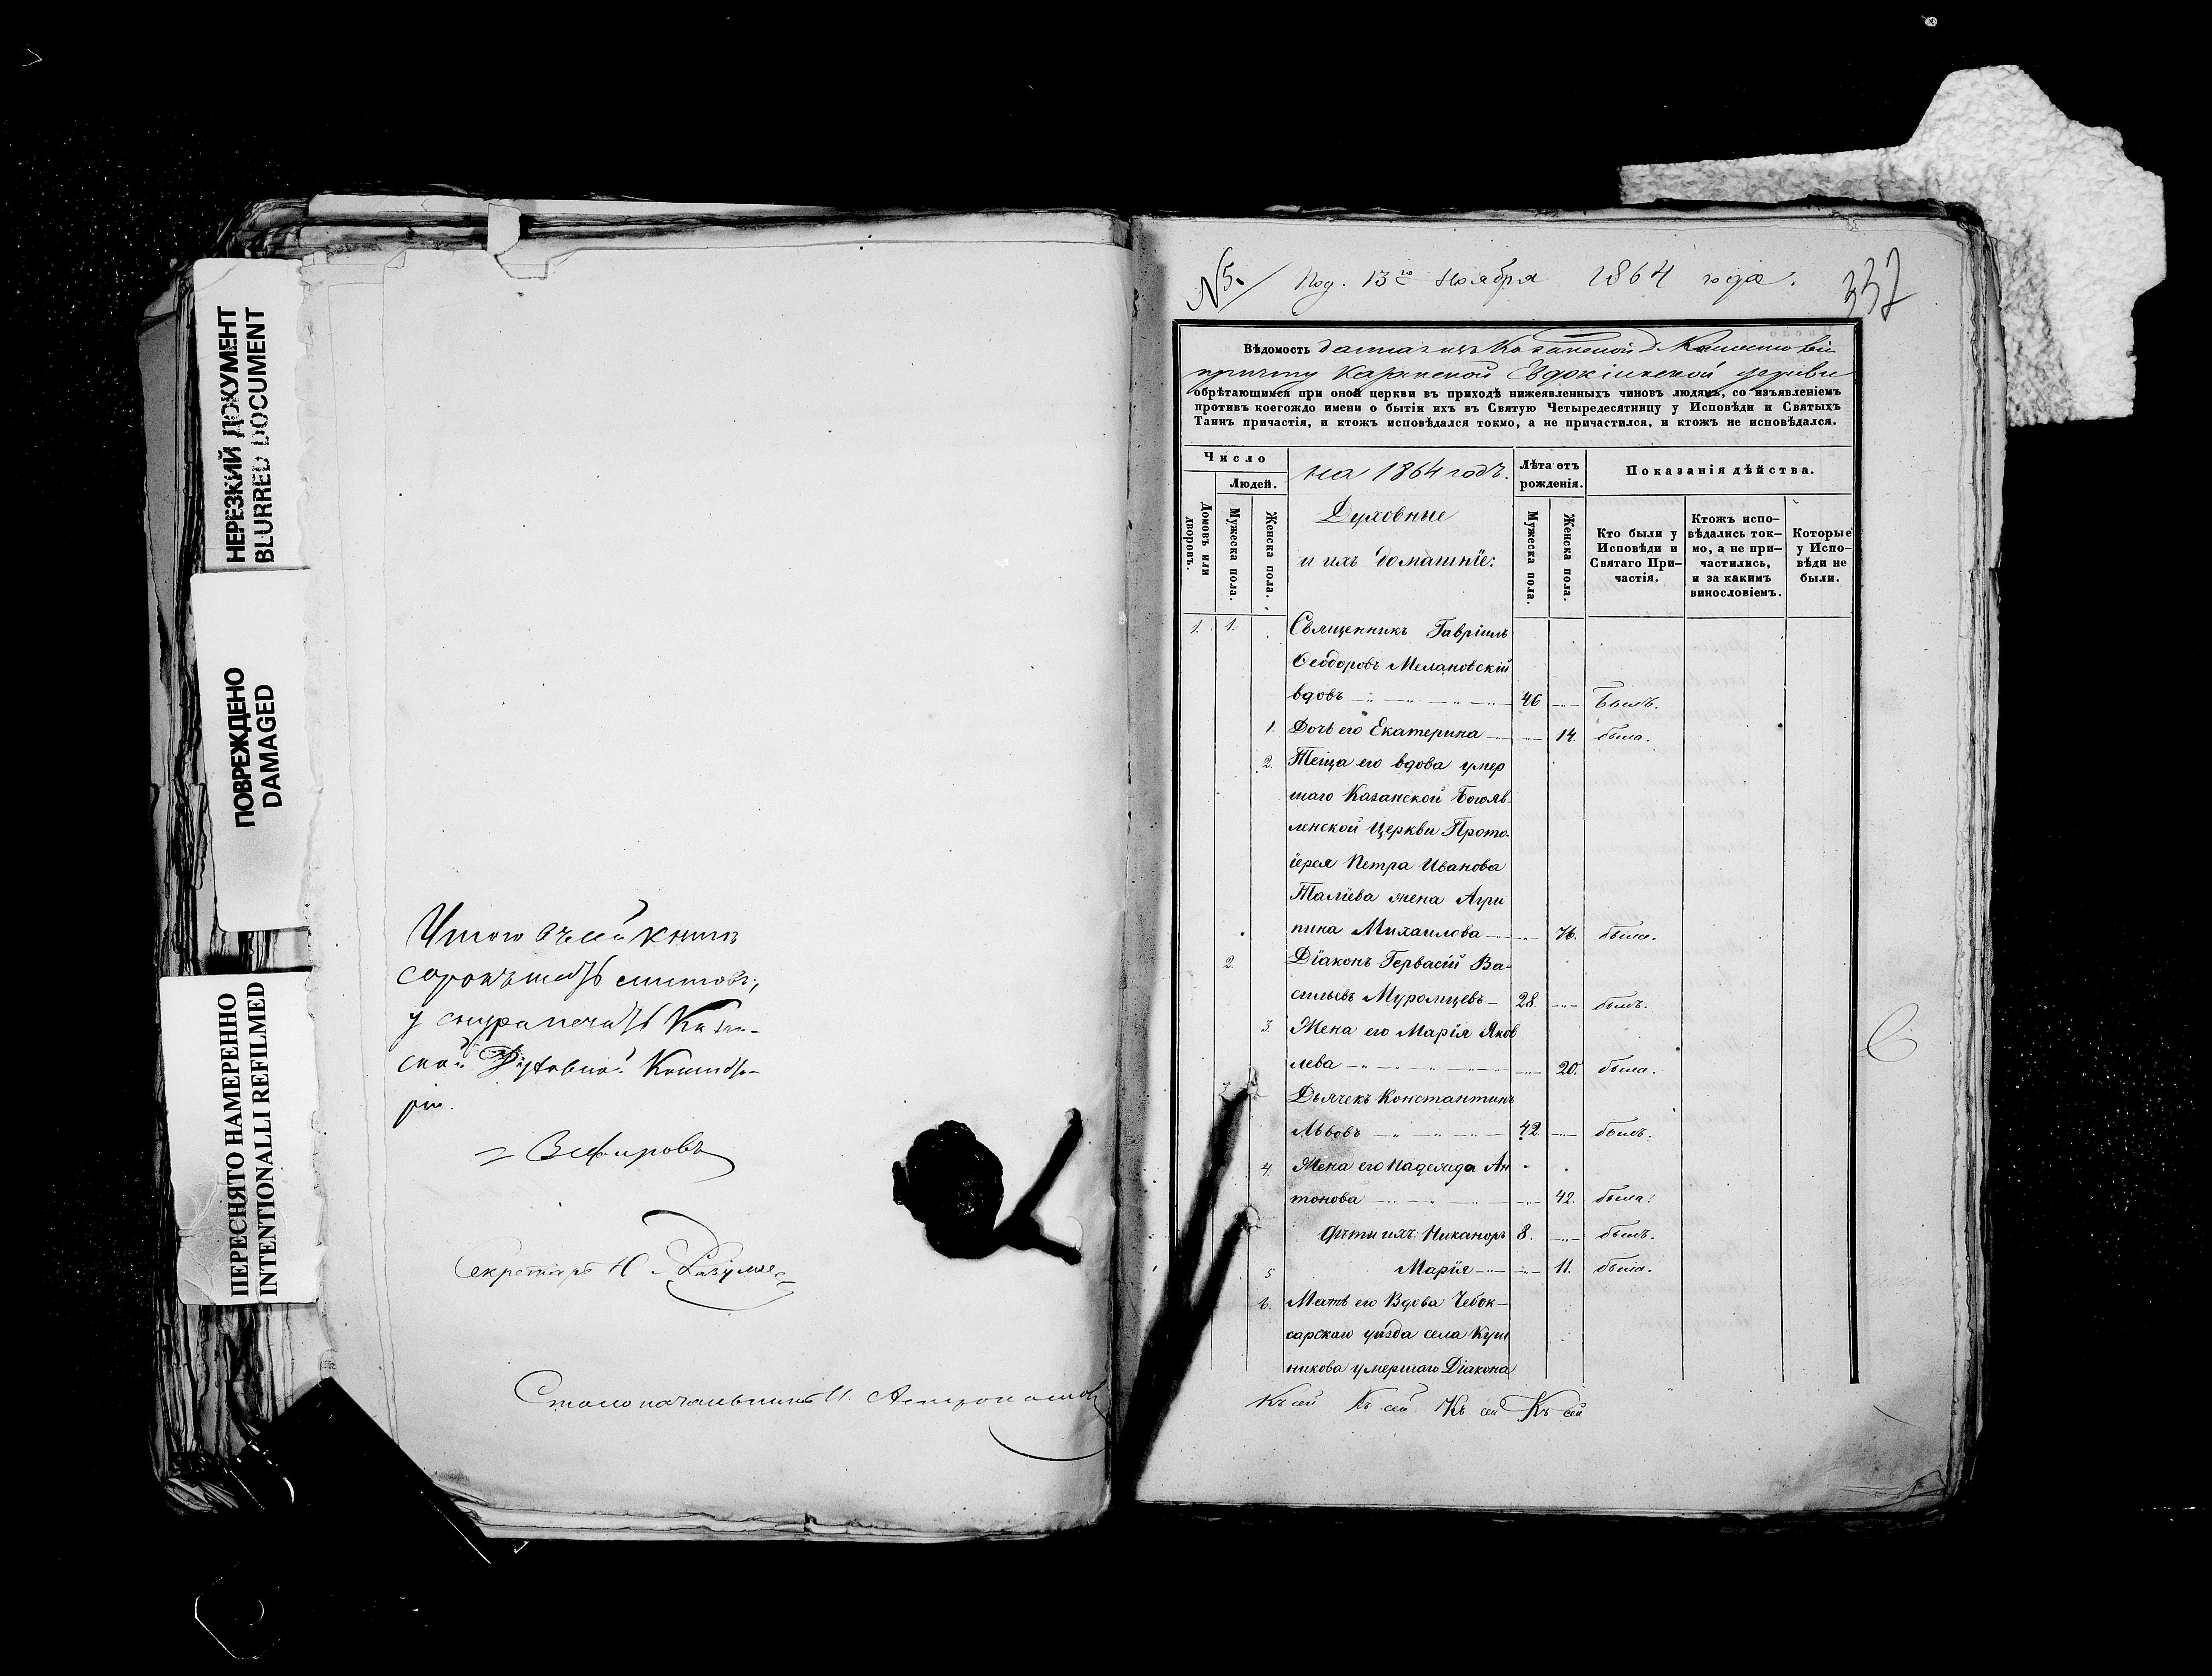 НЕРЕЗКИЙ ДОКУМЕНТ
BLURRED DOCUMENT
ПОВРЕЖДЕНО
DAMAGED
ПЕРЕСНЯТО НАМЕРЕННО
INTENTIONALLI REFILMED
Итого въ сей книгѣ
сорокъ шесть листовъ,
у снура печать Казан-
ской Духовной Консисто-
ріи.
Секретарь Н. Разумов
Столоначальникъ
№ 5. Под. 13го Ноября 1864 года.
337
Вѣдомость данная изъ Казанской Д. Консисторіи
причту Казанской Евдокіинской церкви
обрѣтающимся при оной церкви въ приходѣ нижеявленныхъ чиновъ людямъ, со изъявленіемъ
противъ коегождо имени о бытіи ихъ въ Святую Четыредесятницу у Исповѣди и Святыхъ
Таинъ причастія, и ктожъ исповѣдался токмо, а не причастился, и ктожъ не исповѣдался.
Число
Людей.
Домовъ или дворовъ.
Мужеска пола.
Женска пола.
на 1864 годъ.
Духовные
и ихъ домашніе:
Лѣта отъ
рожденія.
Мужеска пола.
Женска пола.
Показанія дѣйства.
Кто были у
Исповѣди и
Святаго При-
частія.
Ктожъ испо-
вѣдались ток-
мо, а не при-
частились,
и за какимъ
винословіемъ.
Которые
у Испо-
вѣди не
были.
1. 1. Священникъ Гавріилъ
Ѳеодоровъ Мелановскій
вдовъ 46 былъ.
1. Дочь его Екатерина 14. была.
2. Теща его вдова умер
шаго Казанской Богояв-
ленской Церкви Прото-
іерея Петра Иванова
Таліева жена Агри
пина Михаилова 76. была.
2. Діаконъ Гервасій Ва-
сильевъ Муромцевъ 28. былъ.
3. Жена его Марія Яков
лева 20. была.
3. Дьячекъ Константинъ
Львовъ 42. былъ.
4. Жена его Надежда Ан
тонова 42. была.
Дѣти ихъ: Никаноръ 8. былъ.
5 Марія 11. была.
6. Мать его Вдова Чебок-
сарскаго уѣзда села Куш
никова умершаго Діакона
Къ сей Къ сей Къ сей Къ сей